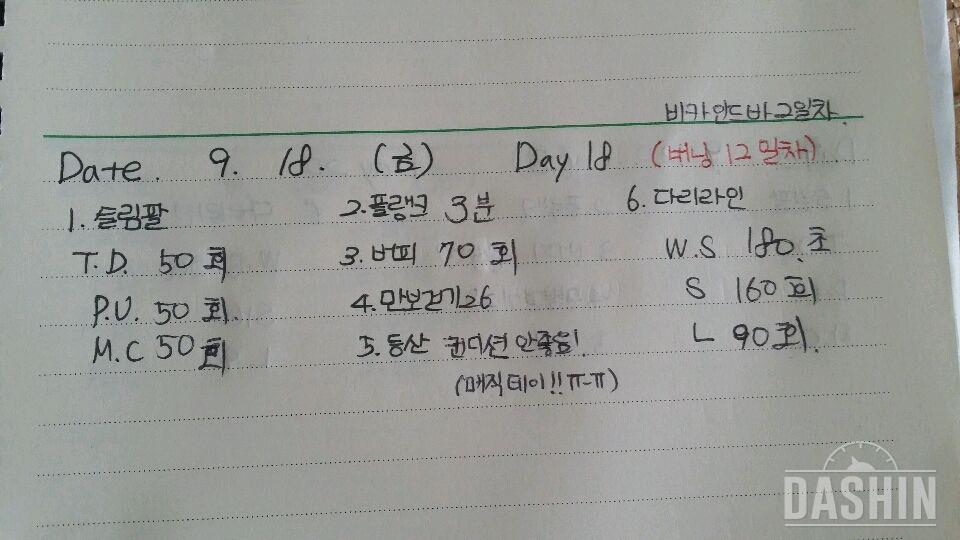 비카인드바 2일차.
Date. 9. 18. (금) Day 18 (버닝 12일차)
1. 슬림팔
T.D. 50회
P.U. 50회.
M.C 50회
2. 플랭크 3분
3. 버피 70회
4. 만보걷기26
5. 등산 컨디션 안좋음!
(매직데이!! ㅠ-ㅠ)
6. 다리라인
W.S 180.초
S 160회
L 90회.
DASHIN